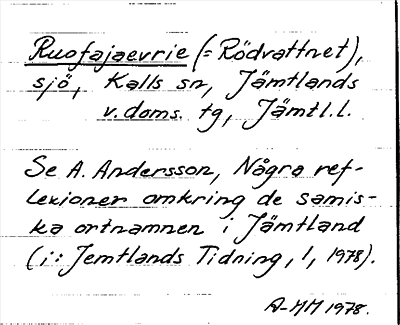 Ruofajaevrie (= Rödvattnet),
sjö, Kalls sn, Jämtlands
v. doms. tg, Jämtl.l.
Se A. Andersson, Några ref-
lexioner omkring de samis-
ka ortnamnen i Jämtland
(i: Jemtlands Tidning, 1, 1978).
A-MM 1978.